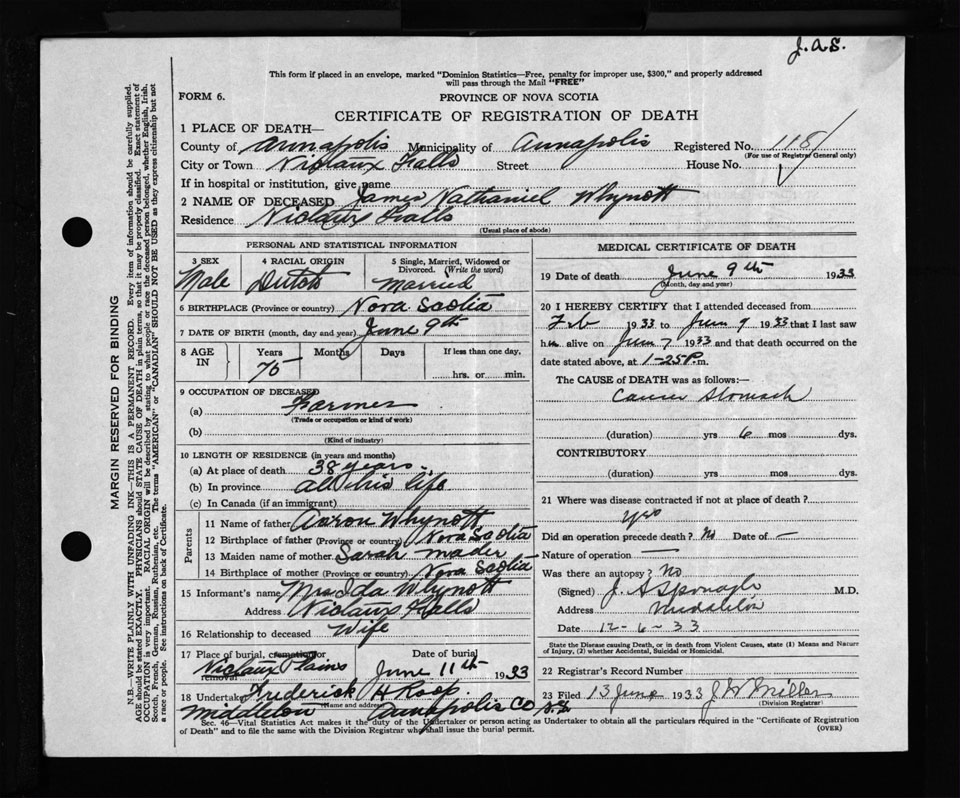 J.A.S.
This form if placed in an envelope, marked "Dominion Statistics—Free, penalty for improper use, $300," and properly addressed
will pass through the Mail "FREE"
FORM 6. PROVINCE OF NOVA SCOTIA
CERTIFICATE OF REGISTRATION OF DEATH
1 PLACE OF DEATH—
County of Annapolis Municipality of Annapolis Registered No. 118
(For use of Registrar General only)
City or Town Nictaux Falls Street House No.
If in hospital or institution, give name
2 NAME OF DECEASED James Nathaniel Whynott
Residence Nictaux Falls
(Usual place of abode)
PERSONAL AND STATISTICAL INFORMATION
3 SEX 4 RACIAL ORIGIN 5 Single, Married, Widowed or Divorced. (Write the word)
Male Dutch Married
6 BIRTHPLACE (Province or country) Nova Scotia
7 DATE OF BIRTH (month, day and year) June 9th
8 AGE IN Years Months Days If less than one day,
75 hrs. or min.
9 OCCUPATION OF DECEASED
(a) Farmer
(Trade or occupation or kind of work)
(b)
(Kind of industry)
10 LENGTH OF RESIDENCE (in years and months)
(a) At place of death 38 years
(b) In province all his life
(c) In Canada (if an immigrant)
Parents
11 Name of father Aaron Whynott
12 Birthplace of father (Province or country) Nova Scotia
13 Maiden name of mother Sarah Mader
14 Birthplace of mother (Province or country) Nova Scotia
15 Informant's name Mrs Ida Whynott
Address Nictaux Falls
16 Relationship to deceased Wife
17 Place of burial, cremation or removal Date of burial
Nictaux Plains June 11th 1933
18 Undertaker Frederick H Roop
(Name and address)
Middleton Annapolis Co N.S.
MEDICAL CERTIFICATE OF DEATH
19 Date of death June 9th 1933
(Month, day and year)
20 I HEREBY CERTIFY that I attended deceased from
Feb 1933 to June 9 1933 that I last saw
him alive on June 7 1933 and that death occurred on the
date stated above, at 1-25 P.m.
The CAUSE OF DEATH was as follows:—
Cancer Stomach
(duration) yrs 6 mos dys.
CONTRIBUTORY
(duration) yrs mos dys.
21 Where was disease contracted if not at place of death?
yes
Did an operation precede death? No Date of —
Nature of operation —
Was there an autopsy? No
(Signed) J. A Sponagle M.D.
Address Middleton
Date 12-6-33
State the Disease causing Death, or in death from Violent Causes, state (1) Means and Nature
of Injury, (2) whether Accidental, Suicidal or Homicidal.
22 Registrar's Record Number
23 Filed 13 June 1933 J W Miller
(Division Registrar)
Sec. 46—Vital Statistics Act makes it the duty of the Undertaker or person acting as Undertaker to obtain all the particulars required in the "Certificate of Registration
of Death" and to file the same with the Division Registrar who shall issue the burial permit. (OVER)
MARGIN RESERVED FOR BINDING
N.B.—WRITE PLAINLY WITH UNFADING INK—THIS IS A PERMANENT RECORD. Every item of information should be carefully supplied.
AGE should be stated EXACTLY. PHYSICIANS should STATE CAUSE OF DEATH in plain terms, so that it may be properly classified. Exact statement of
OCCUPATION is very important. RACIAL ORIGIN will be described by stating to what people or race the deceased person belonged, whether English, Irish,
Scotch, French, German, Russian, Ruthenian, etc. The terms "AMERICAN" or "CANADIAN" SHOULD NOT BE USED as they express citizenship but not
a race or people. See instructions on back of Certificate.